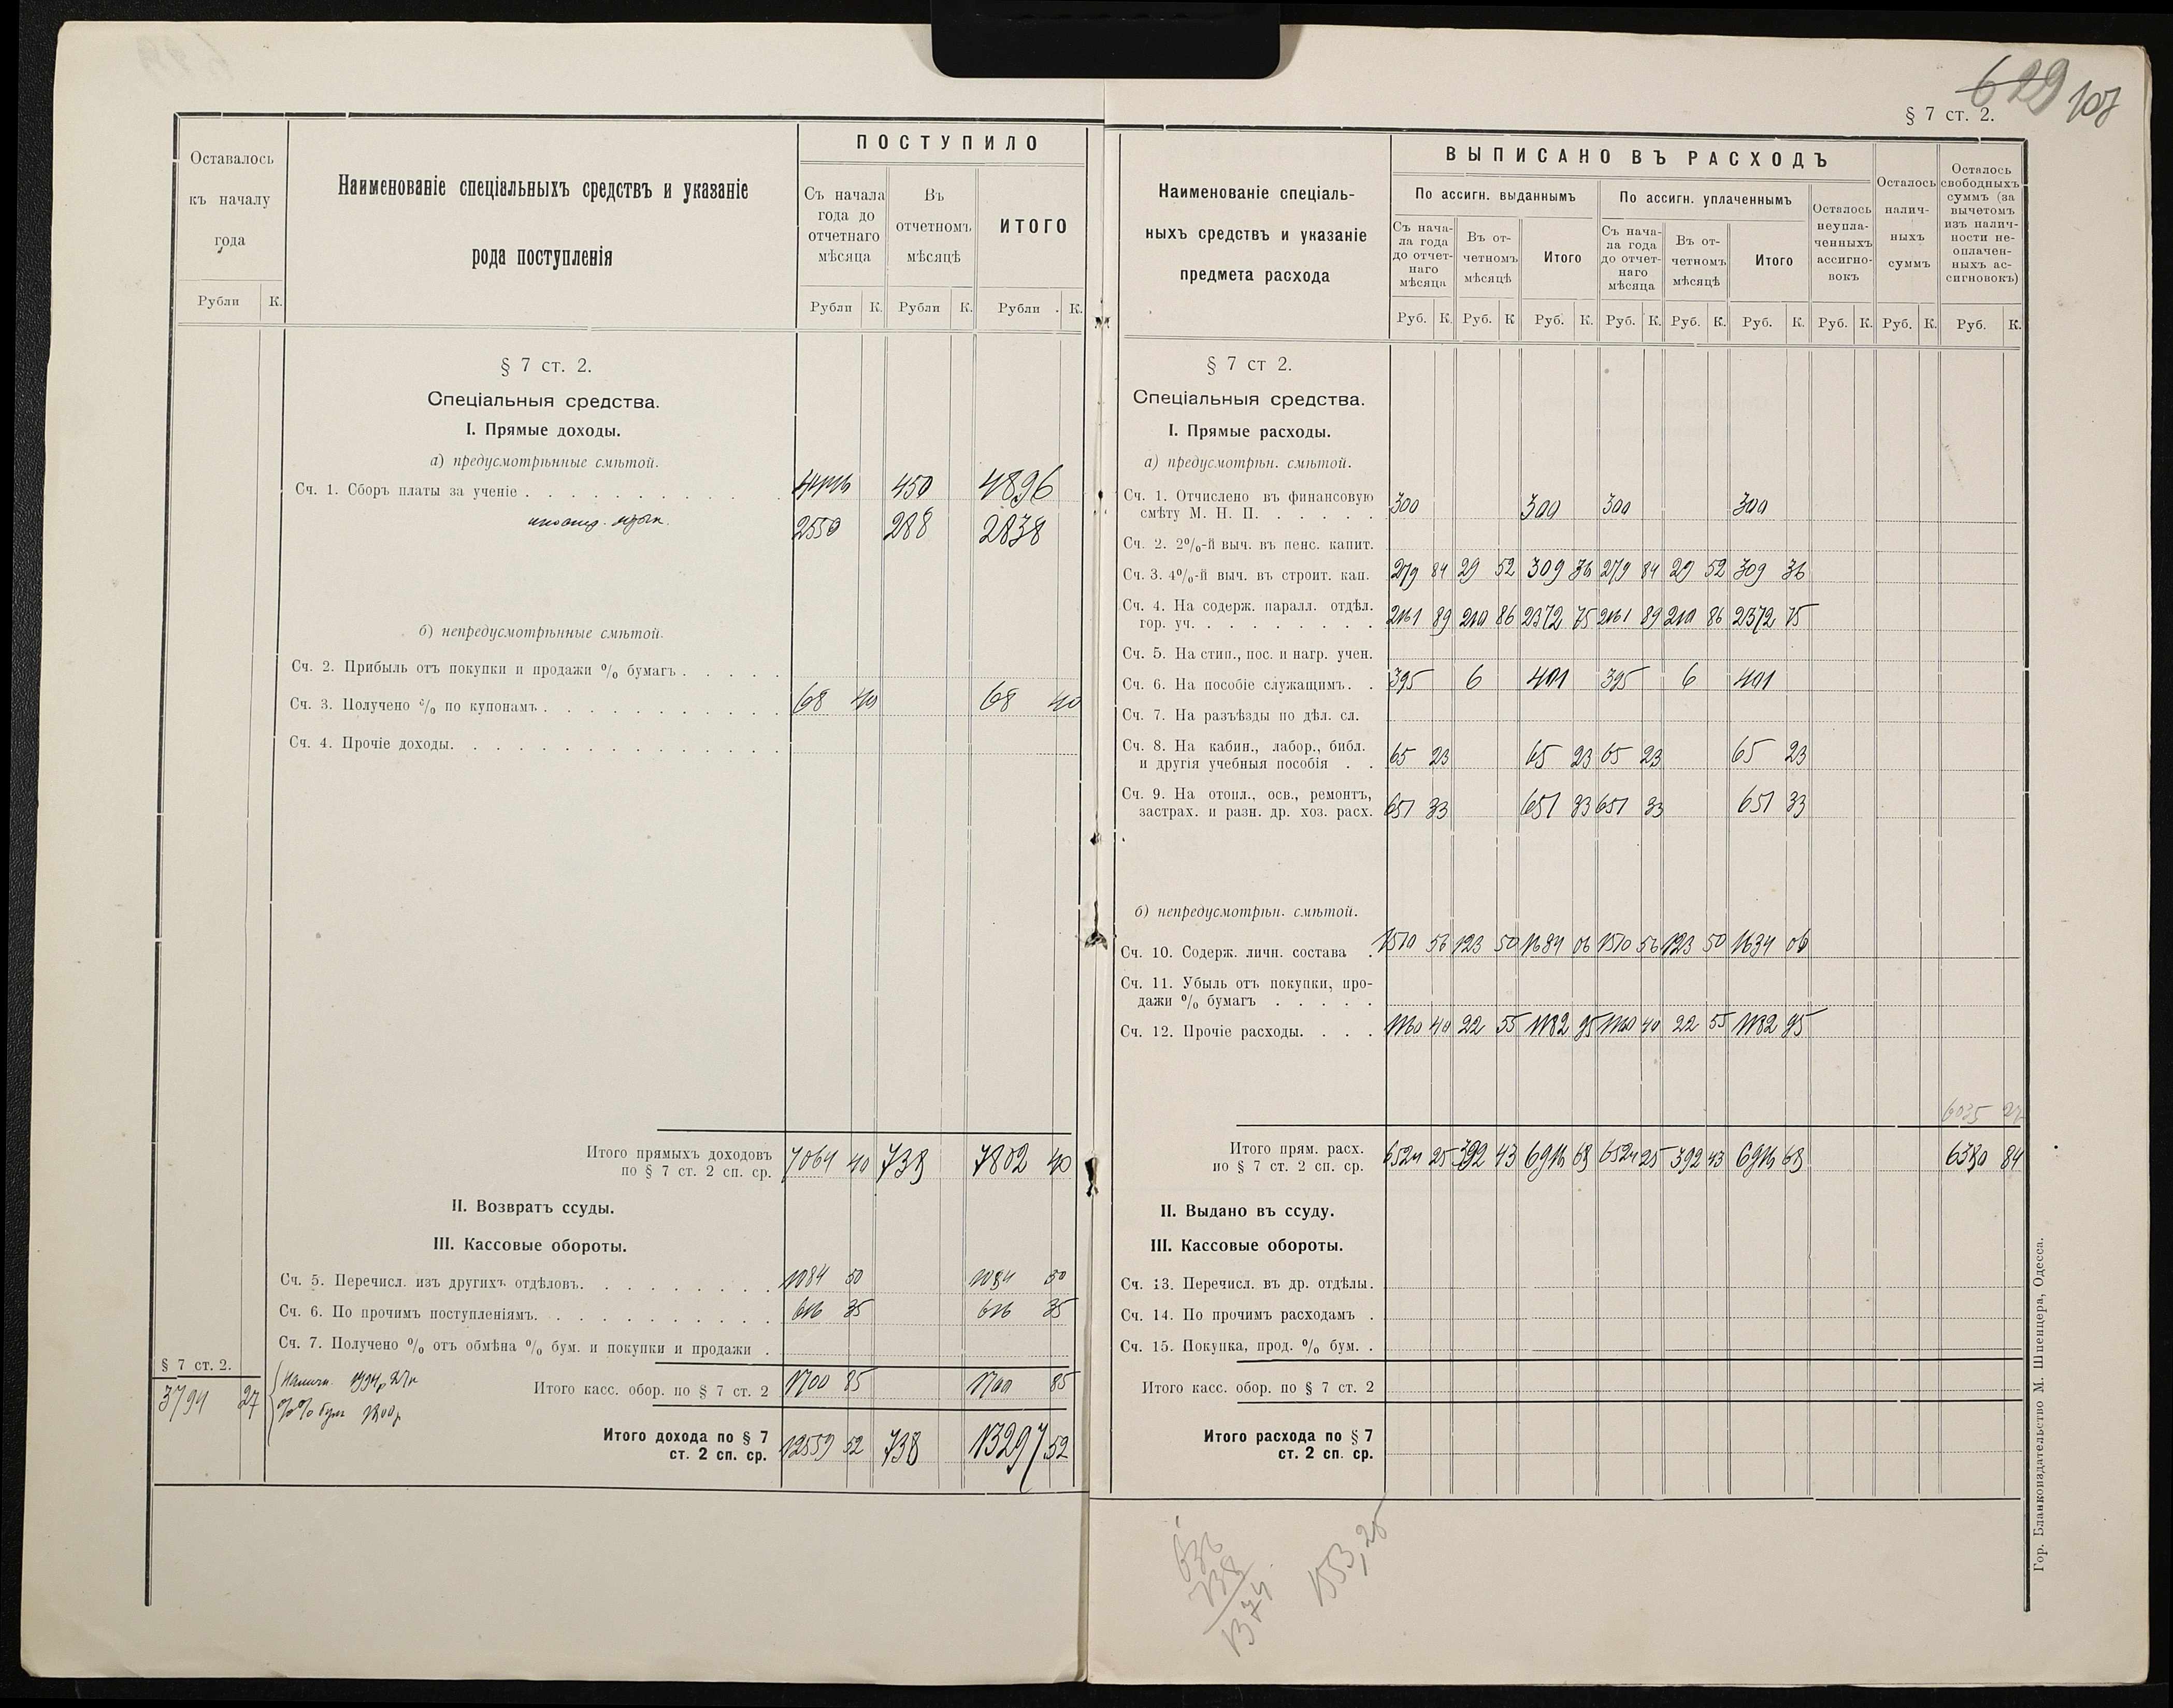 629 107
§ 7 ст. 2.
Оставалось
къ началу
года
Рубли К.
Наименованіе спеціальныхъ средствъ и указаніе
рода поступленія
ПОСТУПИЛО
Съ начала
года до
отчетнаго
мѣсяца
Въ
отчетномъ
мѣсяцѣ
ИТОГО
Рубли К. Рубли К. Рубли К.
§ 7 ст. 2.
Спеціальныя средства.
I. Прямые доходы.
а) предусмотрѣнные смѣтой.
Сч. 1. Сборъ платы за ученіе . . . . . . . . . . . 4446 450 4896
2550 288 2838
б) непредусмотрѣнные смѣтой.
Сч. 2. Прибыль отъ покупки и продажи % бумагъ . . . . .
Сч. 3. Получено % по купонамъ . . . . . . . . . . . 68 40 68 40
Сч. 4. Прочіе доходы. . . . . . . . . . . . . . .
Итого прямыхъ доходовъ
по § 7 ст. 2 сп. ср. 7064 40 738 7802 40
II. Возвратъ ссуды.
III. Кассовые обороты.
Сч. 5. Перечисл. изъ другихъ отдѣловъ. . . . . . . . . 1084 50 1084 50
Сч. 6. По прочимъ поступленіямъ. . . . . . . . . . . 616 35 616 35
Сч. 7. Получено % отъ обмѣна % бум. и покупки и продажи .
§ 7 ст. 2.
3794 27
Итого касс. обор. по § 7 ст. 2 1700 85 1700 85
Итого дохода по § 7
ст. 2 сп. ср. 12559 52 738 13297 52
Наименованіе спеціаль-
ныхъ средствъ и указаніе
предмета расхода
ВЫПИСАНО ВЪ РАСХОДЪ
По ассигн. выданнымъ
По ассигн. уплаченнымъ
Съ нача-
ла года
до отчет-
наго
мѣсяца
Въ от-
четномъ
мѣсяцѣ
Итого
Съ нача-
ла года
до отчет-
наго
мѣсяца
Въ от-
четномъ
мѣсяцѣ
Итого
Осталось
неупла-
ченныхъ
ассигно-
вокъ
Осталось
налич-
ныхъ
суммъ
Осталось
свободныхъ
суммъ (за
вычетомъ
изъ налич-
ности не-
оплачен-
ныхъ ас-
сигновокъ)
Руб. К. Руб. К Руб. К. Руб. К. Руб. К. Руб. К. Руб. К. Руб. К. Руб. К.
§ 7 ст 2.
Спеціальныя средства.
I. Прямые расходы.
а) предусмотрѣн. смѣтой.
Сч. 1. Отчислено въ финансовую
смѣту М. Н. П. . . . . . 300 300 300 300
Сч. 2. 2%-й выч. въ пенс. капит.
Сч. 3. 4%-й выч. въ строит. кап. 279 84 29 52 309 36 279 84 29 52 309 36
Сч. 4. На содерж. паралл. отдѣл.
гор. уч. . . . . . . . . 2161 89 210 86 2372 75 2161 89 210 86 2372 75
Сч. 5. На стип., пос. и нагр. учен.
Сч. 6. На пособіе служащимъ. . 395 6 401 395 6 401
Сч. 7. На разъѣзды по дѣл. сл.
Сч. 8. На кабин., лабор., библ.
и другія учебныя пособія . . 65 23 65 23 65 23 65 23
Сч. 9. На отопл., осв., ремонтъ,
застрах. и разн. др. хоз. расх. 651 33 651 33 651 33 651 33
б) непредусмотрѣн. смѣтой.
Сч. 10. Содерж. личн. состава . 1510 56 123 50 1634 06 1510 56 123 50 1634 06
Сч. 11. Убыль отъ покупки, про-
дажи % бумагъ . . . . .
Сч. 12. Прочіе расходы. . . . 1160 40 22 55 1182 95 1160 40 22 55 1182 95
Итого прям. расх.
по § 7 ст. 2 сп. ср. 6524 25 392 43 6916 68 6524 25 392 43 6916 68 6380 84
II. Выдано въ ссуду.
III. Кассовые обороты.
Сч. 13. Перечисл. въ др. отдѣлы.
Сч. 14. По прочимъ расходамъ .
Сч. 15. Покупка, прод. % бум. .
Итого касс. обор. по § 7 ст. 2
Итого расхода по § 7
ст. 2 сп. ср.
636
738
1374
1553,25
Гор. Бланкоиздательство М. Шпенцера, Одесса.